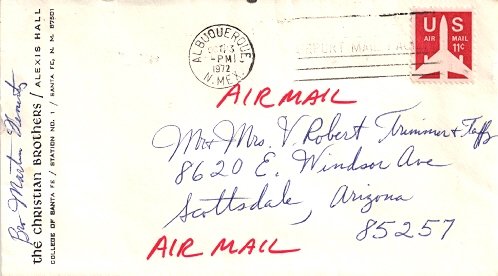 Bro Martin
the christian brothers / ALEXIS HALL
COLLEGE OF SANTA FE / STATION NO. 1 / SANTA FE, N. M. 87501
ALBUQUERQUE
-PM
1972
N. MEX.
US
AIR MAIL
11¢
AIR MAIL
Mr + Mrs. V. Robert Trimmer + Taffy
8620 E. Windsor Ave
Scottsdale, Arizona
85257
AIR MAIL